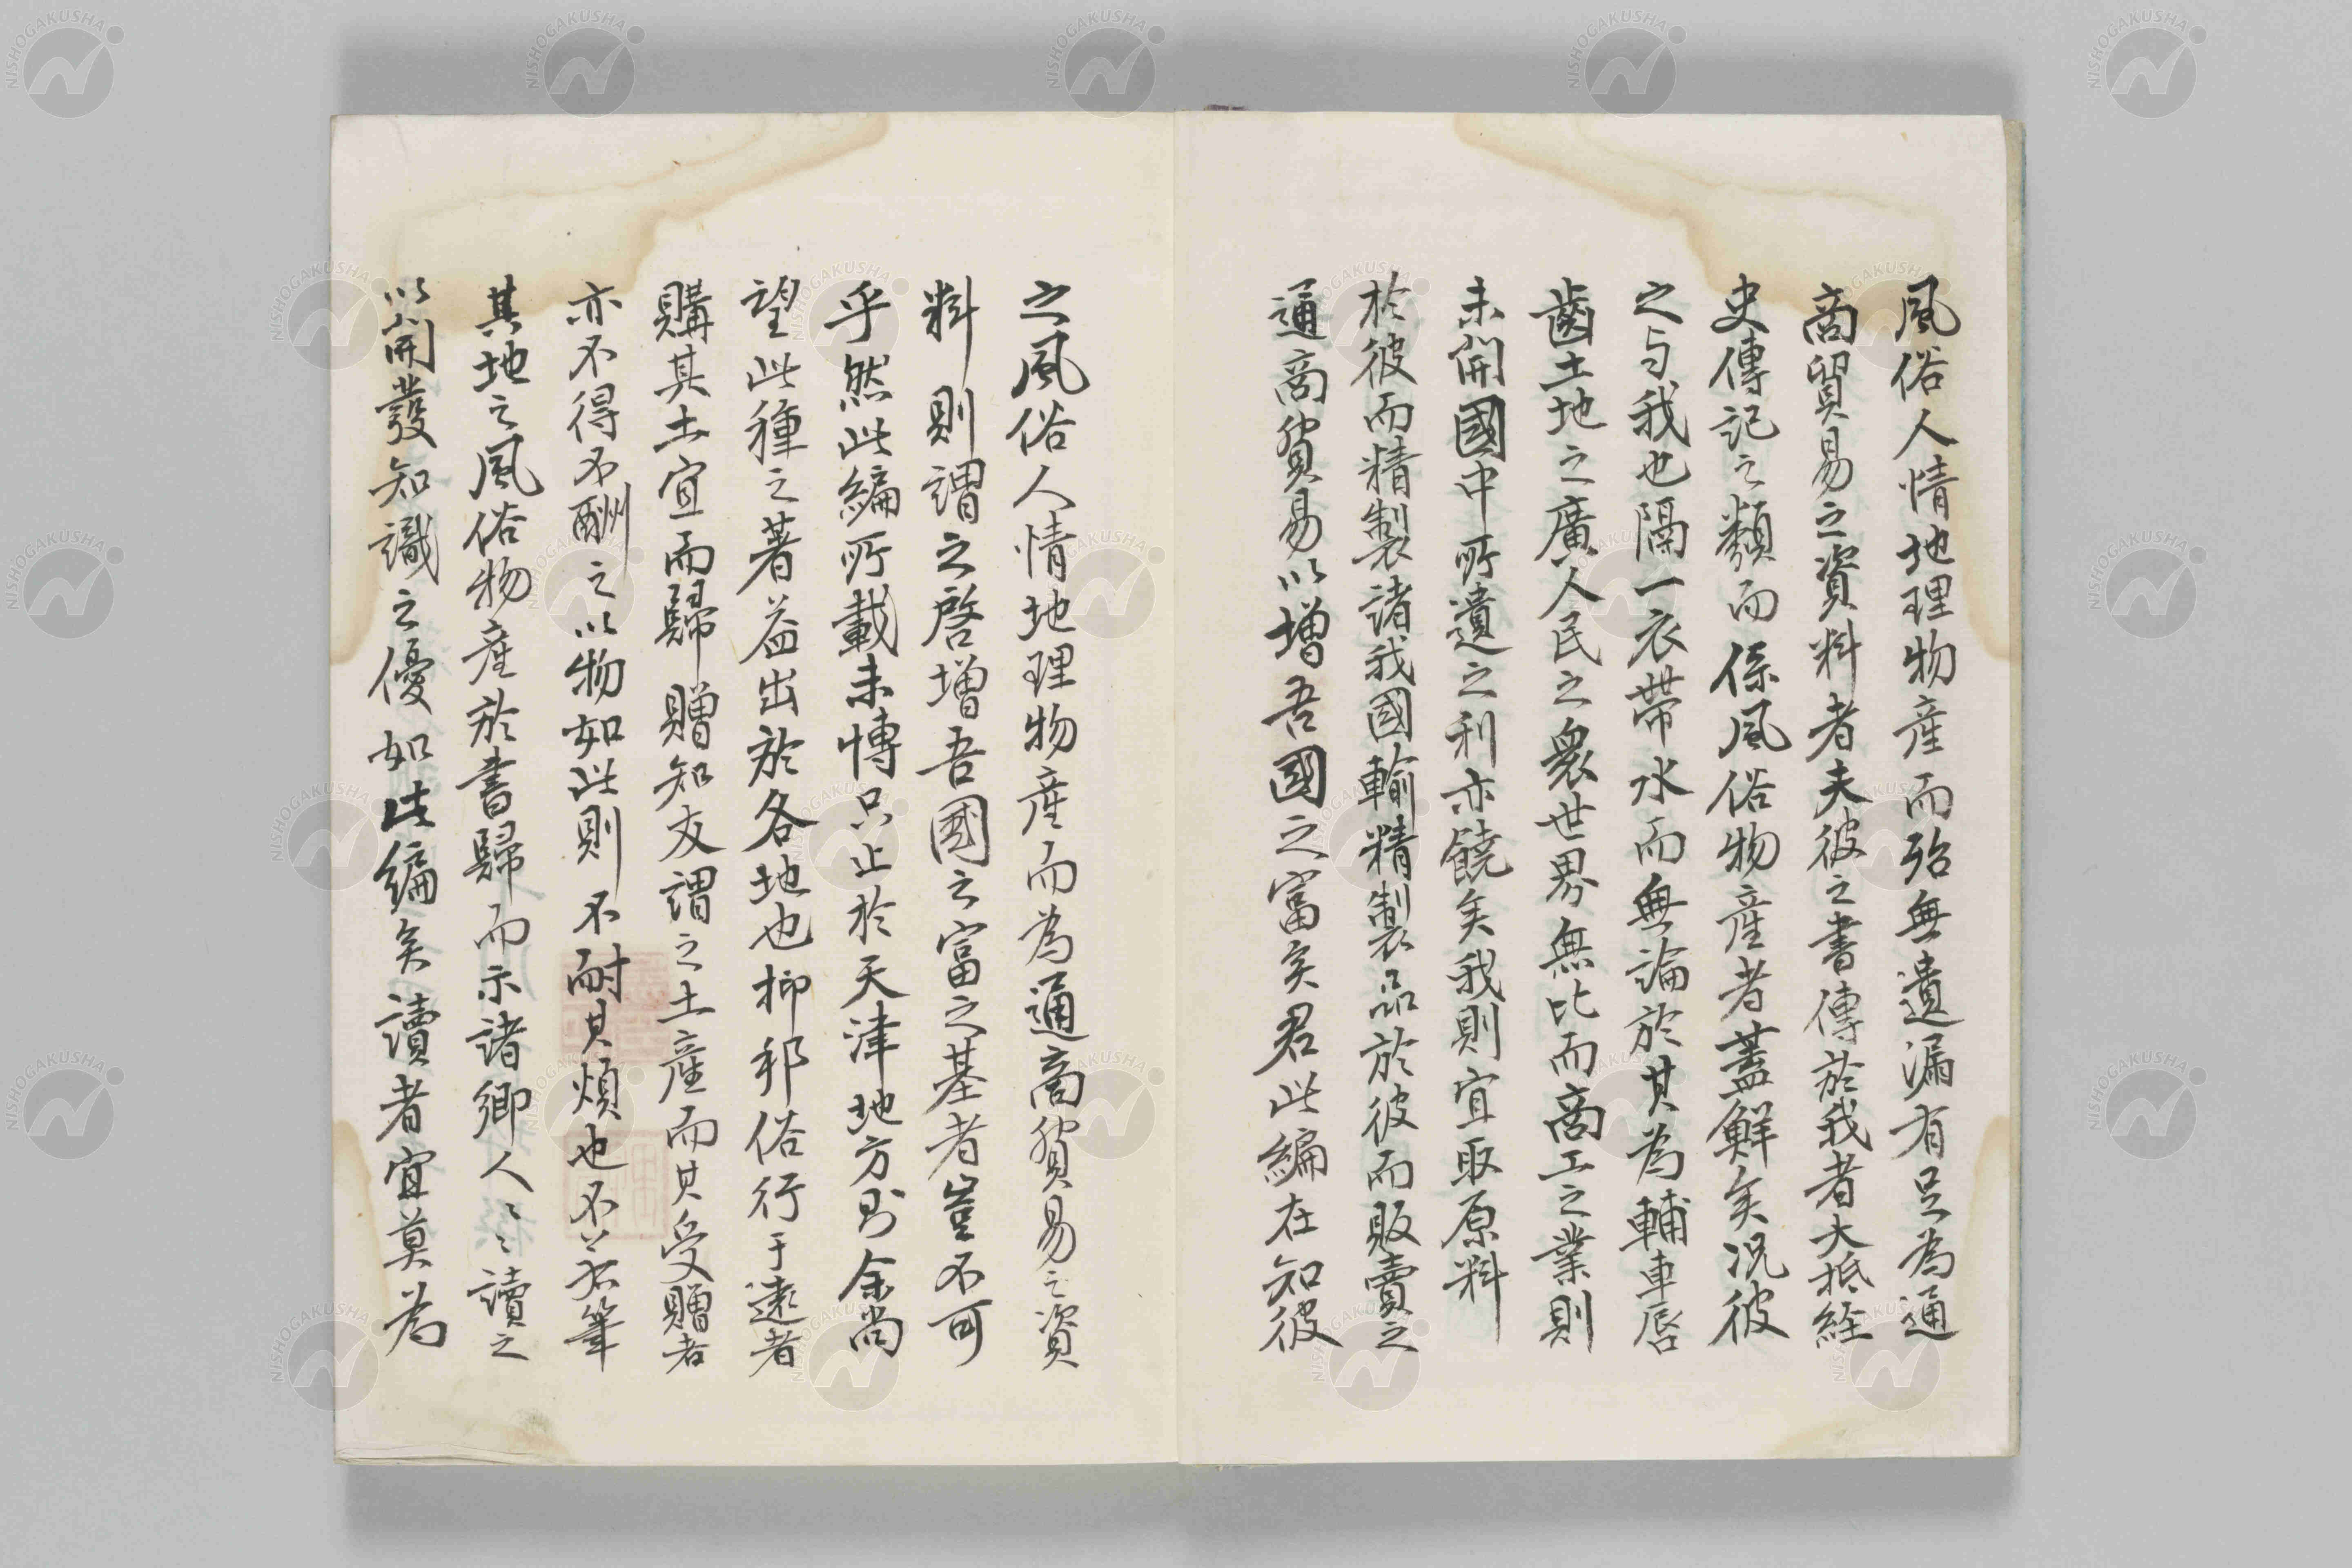 風俗人情地理物産而殆無遺漏有足為通
商貿易之資料者夫彼之書傳於我者大抵経
史傳記之類而係風俗物産者蓋鮮矣況彼
之与我也隔一衣帶水而無論於其為輔車唇
齒土地之廣人民之衆世界無比而商工之業則
未開國中所遺之利亦饒矣我則宜取原料
於彼而精製諸我國輸精製品於彼而販賣之
通商貿易以增吾國之富矣君此編在知彼
之風俗人情地理物産而為通商貿易之資
料則謂之啓增吾國之富之基者豈不可
乎然此編所載未博只止於天津地方則余尚
望此種之著益出於各地也抑邦俗行于遠者
購其土宜而歸贈知友謂之土産而其受贈者
亦不得不酬之以物如此則不耐其煩也不若筆
其地之風俗物産於書歸而示諸郷人〻〻讀之
以開發知識之優如此編矣讀者宜莫為
NISHOGAKUSHA